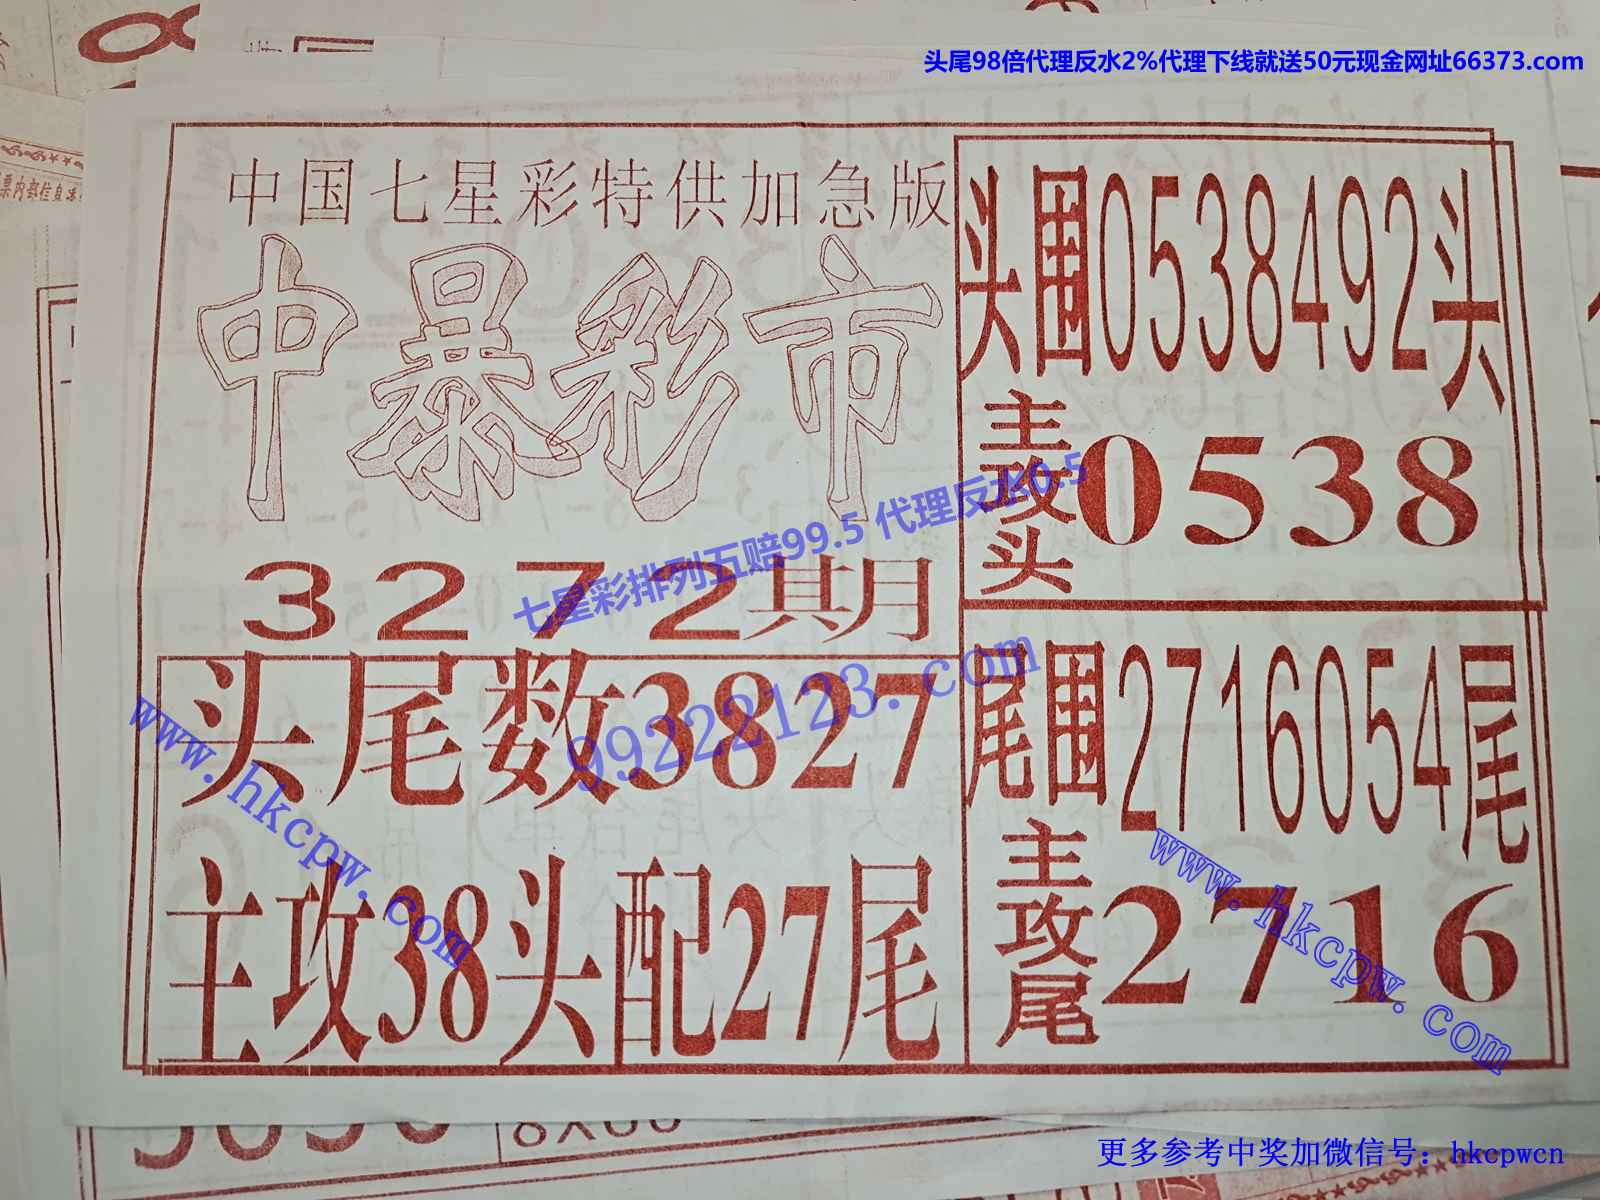 头尾98倍代理反水2%代理下线就送50元现金网址66373.com
中国七星彩特供加急版
中暴彩市
3272期
头尾数3827
主攻38头配27尾
头围0538492头
主攻头0538
尾围2716054尾
主攻尾2716
七星彩排列五赔99.5 代理反水0.5
99222123.com
www.hkcpw.com
www.hkcpw.com
更多参考中奖加微信号：hkcpwcn
票内部信息